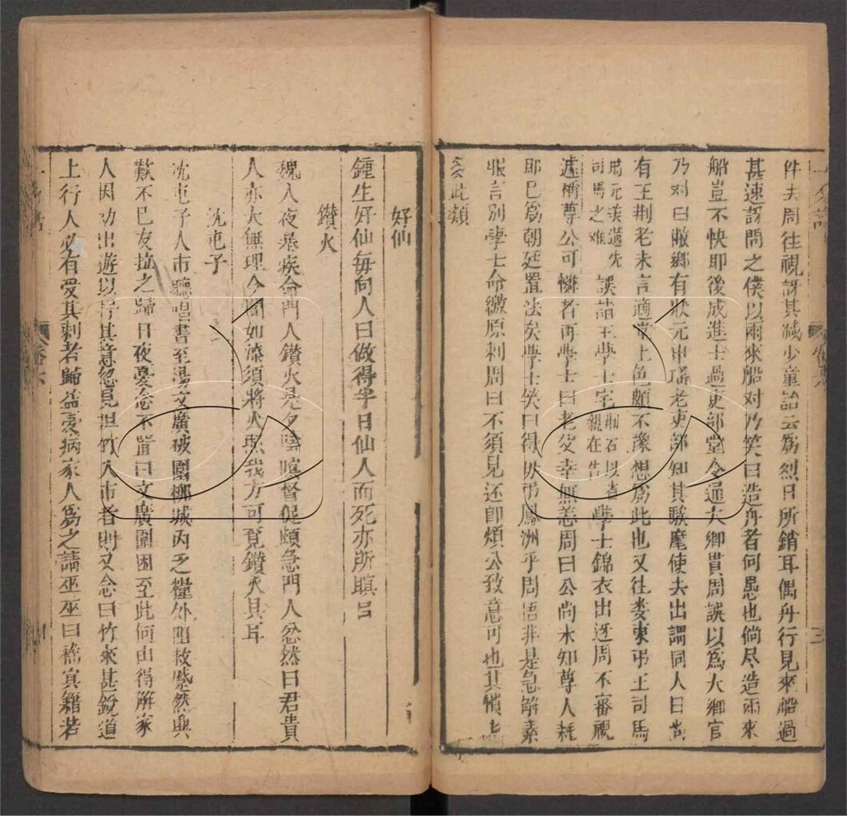 件夫周往視訝其減少童詒云爲烈日所銷耳偶舟行見來船過
甚速訝問之僕以雨來船对乃笑曰造舟者何愚也倘尽造雨來
船豈不快耶後成進士過吏部堂令通大卿貫周誤以爲大卿官
乃对曰敝鄉有狀元申瑤老吏部知其騃麾使去出謂同人曰尚
有王荆老未言適堂上色頗不豫想爲此也又往娄東弔王司馬
爲元美遘先司馬之难
誤詣王學士宅荆石以省親在告學士錦衣出迓周不審視
遽稱尊公可憐者再學士曰老父幸無恙周曰公尚未知尊人耗
耶已爲朝廷置法矣學士笑曰得非弔鳳洲乎周悟非是急解素
服言別學士命繳原刺周曰不須見还即煩公致意可也其憒
多此類
好仙
鍾生好仙每向人曰做得半日仙人而死亦所瞑目
鑽火
魏人夜暴疾命門人鑽火是夕陰暝督促頗急門人忿然曰君貴
人亦大無理今闇如漆須將火照我方可覓鑽火具耳
沈屯子
沈屯子入市聽唱書至楊文廣破圍柳城内乏糧外阻救蹙然興
歎不已友拉之歸日夜憂念不置曰文廣圍困至此何由得解家
人因劝出遊以紓其意忽見担竹入市者則又念曰竹末甚銳道
上行人必有受其刺者歸益憂病家人爲之請巫巫曰稽冥籍若